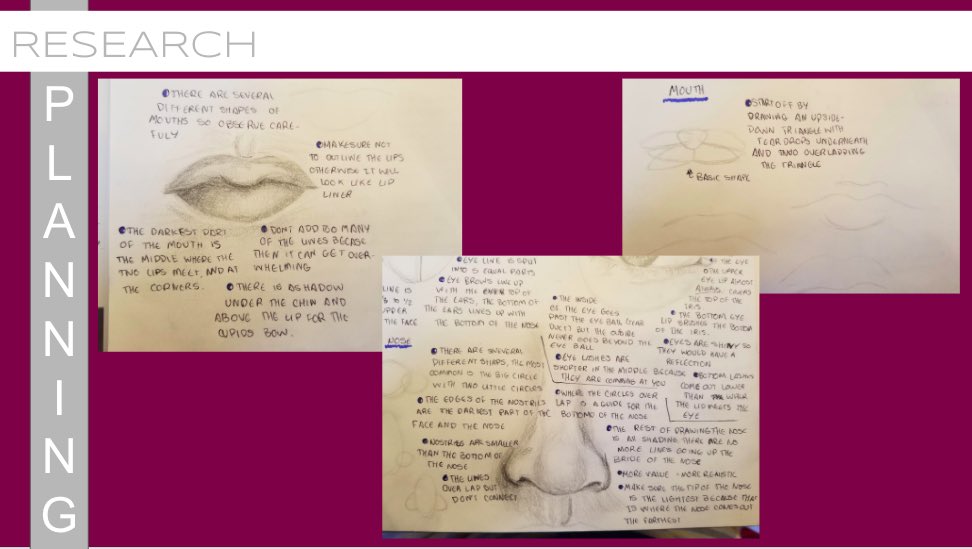 RESEARCH
PLANNING
THERE ARE SEVERAL
DIFFERENT SHAPES OF
MOUTHS SO OBSERVE CARE-
FULY
MAKE SURE NOT
TO OUTLINE THE LIPS
OTHERWISE IT WILL
LOOK LIKE LIP
LINER
THE DARKEST PART
OF THE MOUTH IS
THE MIDDLE WHERE THE
TWO LIPS MEET, AND AT
THE CORNERS.
DON'T ADD TOO MANY
OF THE LINES BECASE
THEN IT CAN GET OVER-
WHELMING
THERE IS A SHADOW
UNDER THE CHIN AND
ABOVE THE LIP FOR THE
CUPIDS BOW.
MOUTH
START OFF BY
DRAWING AN UPSIDE-
DOWN TRIANGLE WITH
TEAR DROPS UNDERNEATH
AND TWO OVERLADDING
THE TRIANGLE
BASIC SHAPE
EYE LINE IS SPLIT
INTO 5 EQUAL PARTS
EYE BROWS LINE UP
WITH THE TOP OF
THE EARS, THE BOTTOM OF
THE EARS LINES UP WITH
THE BOTTOM OF THE NOSE
LINE IS
THE FACE
THE INSIDE
OF THE EYE GOES
PAST THE EYE BALL (TEAR
DUCT) BUT THE OUTSIDE
NEVER GOES BEYOND THE
EYE BALL
EYE LASHES ARE
SHORTER IN THE MIDDLE BECAUSE
THEY ARE COMING AT YOU
OF THE EYE
UPPER
EYE LIP ALMOST
ALWAYS COVERS
THE TOP OF THE
IRIS
THE BOTTOM EYE
LIP BRIDGES THE BOTTOM
OF THE IRIS.
EYES ARE SHINY SO
THEY WOULD HAVE A
REFLECTION
BOTTOM LASHES
COME OUT LOWER
THAN WHERE
THE LID MEETS THE
EYE
NOSE
THERE ARE SEVERAL
DIFFERENT SHAPS, THE MOST
COMMON IS THE BIG CIRCLE
WITH TWO LITTLE CIRCLES
THE EDGES OF THE NOSTRILS
ARE THE DARKEST PART OF THE
FACE AND THE NOSE
WHERE THE CIRCLES OVER
LAP IS A GUIDE FOR THE
BOTTOMO OF THE NOSE
NOSTRILS ARE SMALLER
THAN THE BOTTOM OF
THE NOSE
THE LINES
OVER LAP BUT
DON'T CONNECT
THE REST OF DRAWING THE NOSE
IS AL SHADING, THERE ARE NO
MORE LINES GOING UP THE
BRIDE OF THE NOSE
MORE VALUE - MORE REALISTIC
MAKE SURE THE TIP OF THE NOSE
IS THE LIGHTEST BECAUSE THAT
IS WHERE THE NOSE COMES OUT
THE FARTHEST